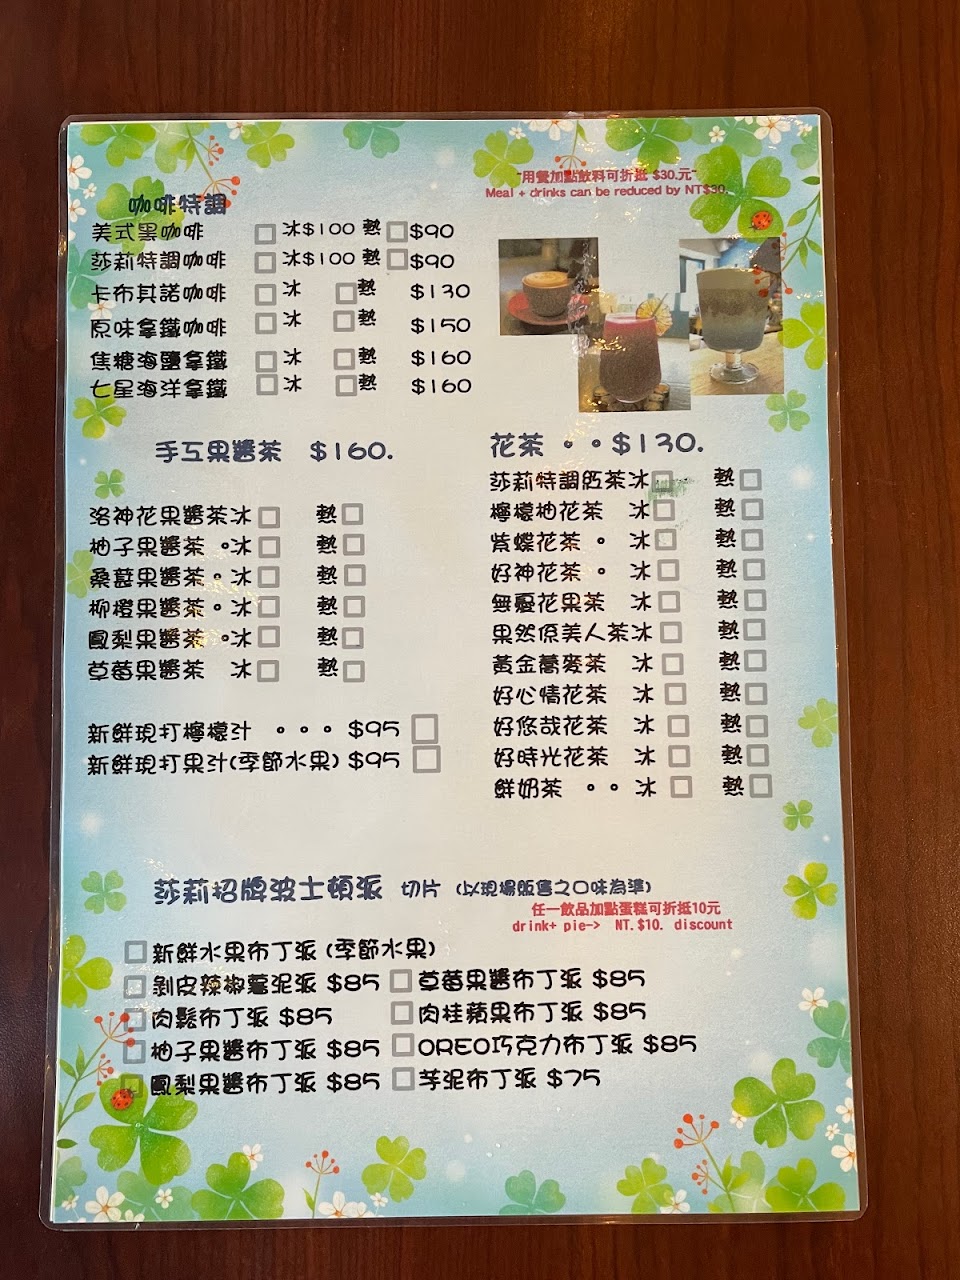 ~用餐加點飲料可折抵 $30.元~
Meal + drinks can be reduced by NT$30.
咖啡特調
美式黑咖啡 □ 冰$100 熱 □ $90
莎莉特調咖啡 □ 冰$100 熱 □ $90
卡布其諾咖啡 □ 冰 □ 熱 $130
原味拿鐵咖啡 □ 冰 □ 熱 $150
焦糖海鹽拿鐵 □ 冰 □ 熱 $160
七星海洋拿鐵 □ 冰 □ 熱 $160
手工果醬茶 $160.
洛神花果醬茶冰 □ 熱 □
柚子果醬茶 。冰 □ 熱 □
桑葚果醬茶。冰 □ 熱 □
柳橙果醬茶。冰 □ 熱 □
鳳梨果醬茶 。冰 □ 熱 □
草莓果醬茶 冰 □ 熱 □
新鮮現打檸檬汁 。。。 $95 □
新鮮現打果汁(季節水果) $95 □
花茶 。。$130.
莎莉特調紅茶冰 □ 熱 □
檸檬柚花茶 冰 □ 熱 □
紫蝶花茶 。 冰 □ 熱 □
好神花茶 。 冰 □ 熱 □
無憂花果茶 冰 □ 熱 □
果然係美人茶冰 □ 熱 □
黃金蕎麥茶 冰 □ 熱 □
好心情花茶 冰 □ 熱 □
好悠哉花茶 冰 □ 熱 □
好時光花茶 冰 □ 熱 □
鮮奶茶 。。 冰 □ 熱 □
莎莉招牌波士頓派 切片 (以現場販售之口味為準)
任一飲品加點蛋糕可折抵10元
drink+ pie-> NT.$10. discount
□ 新鮮水果布丁派 (季節水果)
□ 剝皮辣椒薯泥派 $85 □ 草莓果醬布丁派 $85
□ 肉鬆布丁派 $85 □ 肉桂蘋果布丁派 $85
□ 柚子果醬布丁派 $85 □ OREO巧克力布丁派 $85
□ 鳳梨果醬布丁派 $85 □ 芋泥布丁派 $75